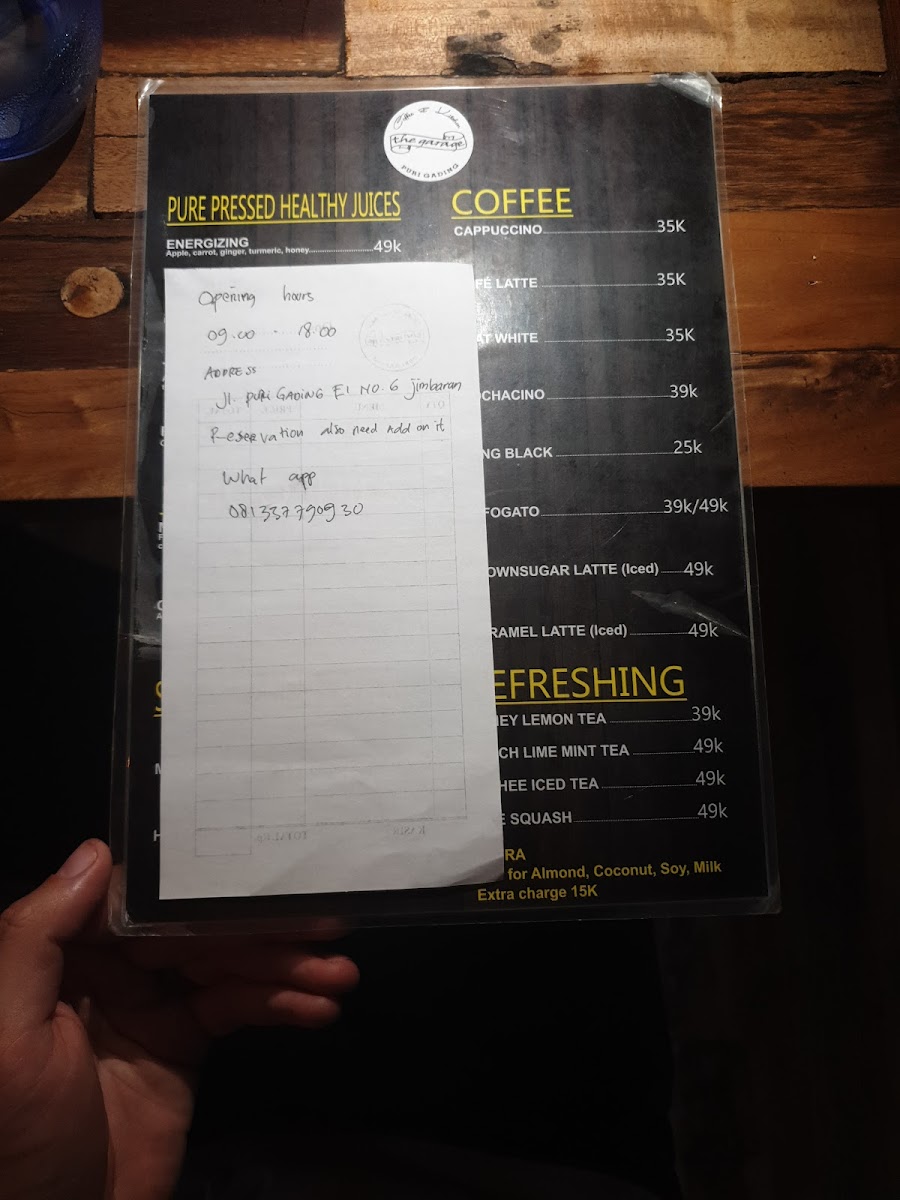 the garage
PURI GADING
PURE PRESSED HEALTHY JUICES
ENERGIZING
Apple, carrot, ginger, turmeric, honey 49k
Opening hours
09.00 - 18.00
ADDRESS
Jl. PURI GADING E1 NO. 6 jimbaran
Reservation also need Add on it
What app
081337790930
COFFEE
CAPPUCCINO 35K
FÉ LATTE 35K
AT WHITE 35K
OCHACINO 39k
NG BLACK 25k
FOGATO 39k/49k
OWNSUGAR LATTE (Iced) 49k
RAMEL LATTE (Iced) 49k
EFRESHING
NEY LEMON TEA 39k
CH LIME MINT TEA 49k
HEE ICED TEA 49k
E SQUASH 49k
RA
for Almond, Coconut, Soy, Milk
Extra charge 15K